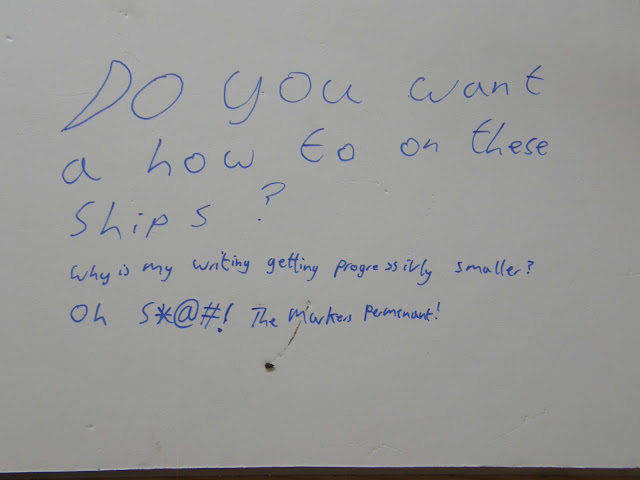 Do you want
a how to on these
ships ?
Why is my writing getting progressivly smaller?
Oh S*@#! The Markers Perminant!